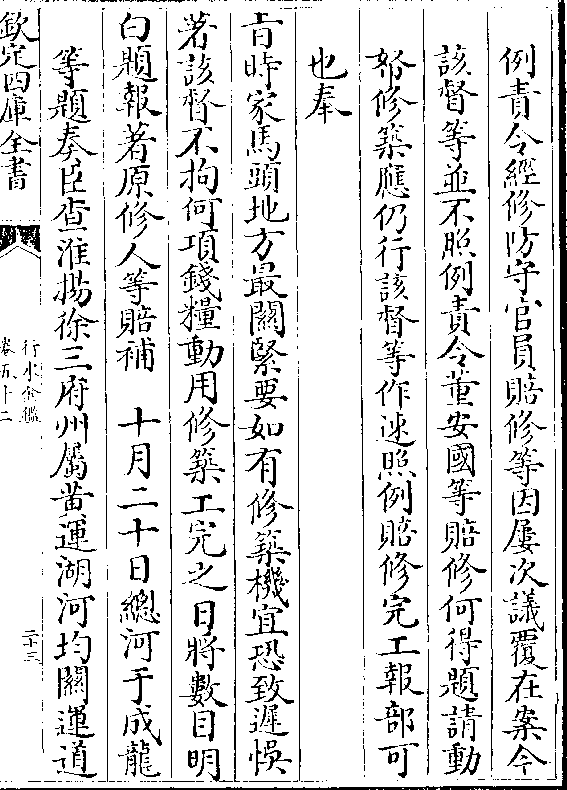 例責令經修防守官員賠修等因屢次議覆在案今
該督等並不照例責令董安國等賠修何得題請動
帑修築應仍行該督等作速照例賠修完工報部可
也奉
旨時家馬頭地方最關緊要如有修築機宜恐致遲悞
著該督不拘何項錢糧動用修築工完之日將數目明
白題報著原修人等賠補　十月二十日總河于成龍
等題奏臣查淮揚徐三府州屬黃運湖河均關運道
欽定四庫全書
行水金鑑
卷五十二
二十三